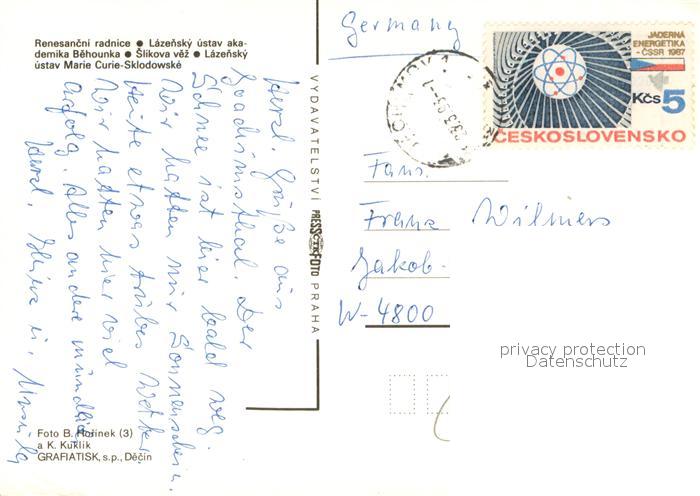 Renesanční radnice ● Lázeňský ústav aka-
demika Běhounka ● Šlikova věž ● Lázeňský
ústav Marie Curie-Sklodowské
Herzl. Grüße aus
Joachimsthal. Der
Schnee ist hier bald weg.
Wir hatten nur Sonnenschein.
Heute etwas trübes Wetter.
Wir hatten hier viel
Erfolg. Alles andere mündlich.
Herzl.
Foto B. Hořínek (3)
a K. Kuklík
GRAFIATISK, s.p., Děčín
VYDAVATELSTVÍ PRESSFOTO PRAHA
Germany
JADERNÁ
ENERGETIKA
ČSSR 1987
Kčs 5
ČESKOSLOVENSKO
Fam.
Franz Wilmers
Jakob-
W-4800
privacy protection
Datenschutz